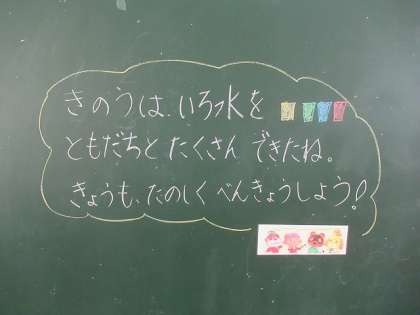 きのうは、いろ水を
ともだちと たくさん できたね。
きょうも、たのしく べんきょうしよう!